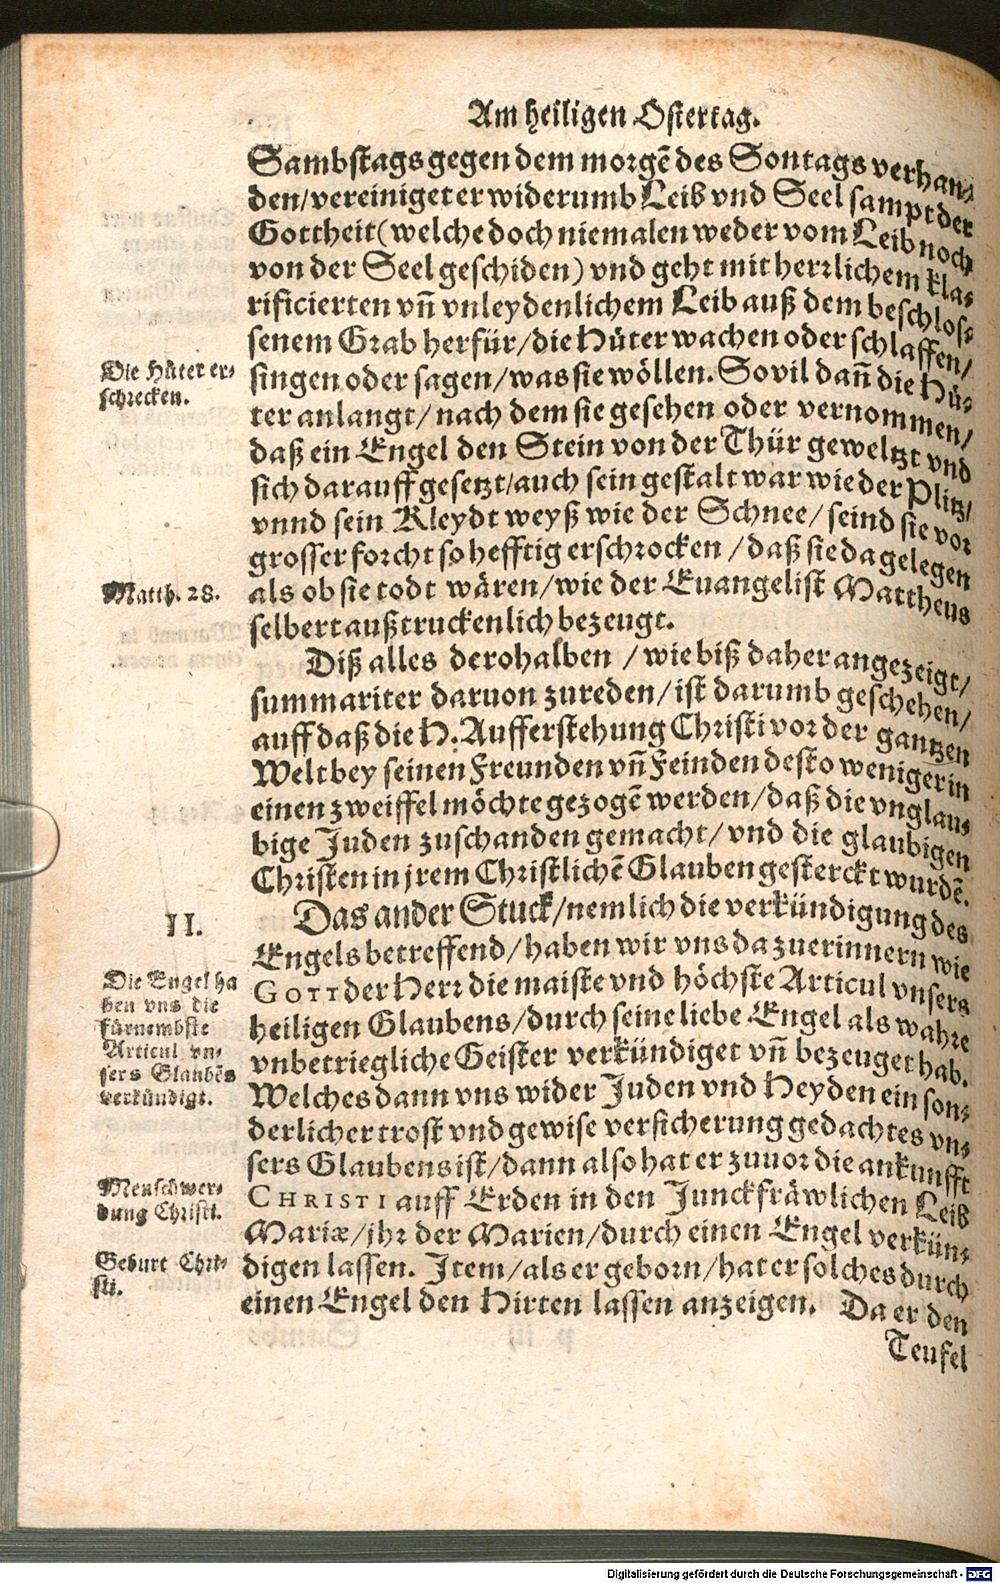 Am heiligen Ostertag.
Sambstags gegen dem morgẽ des Sontags verhan-
den/vereiniget er widerumb Leib vnd Seel sampt der
Gottheit (welche doch niemalen weder vom Leib noch
von der Seel geschiden) vnd geht mit herrlichem kla-
rificierten vñ vnleydenlichem Leib auß dem beschlos-
senem Grab herfür/die Hüter wachen oder schlaffen/
singen oder sagen/was sie wöllen. So vil dañ die Hü-
ter anlangt/nach dem sie gesehen oder vernommen/
daß ein Engel den Stein von der Thür geweltzt vnd
sich darauff gesetzt/auch sein gestalt war wie der Plitz/
vnnd sein Kleydt weyß wie der Schnee/seind sie vor
grosser forcht so hefftig erschrocken/daß sie da gelegen
als ob sie todt wären/wie der Euangelist Mattheus
selbert außtruckenlich bezeugt.
Die Hüter er-
schrecken.
Matth. 28.
Diß alles derohalben/wie biß daher angezeigt/
summariter daruon zureden/ist darumb geschehen/
auff daß die H. Aufferstehung Christi vor der gantzen
Welt bey seinen Freunden vñ Feinden desto weniger in
einen zweiffel möchte gezogẽ werden/daß die vnglau-
bige Juden zuschanden gemacht/vnd die glaubigen
Christen in jrem Christlichẽ Glauben gesterckt wurdẽ.
II.
Das ander Stuck/nemlich die verkündigung des
Engels betreffend/haben wir vns da zuerinnern wie
GOTT der Herr die maiste vnd höchste Articul vnsers
heiligen Glaubens/durch seine liebe Engel als wahre
vnbetriegliche Geister verkündiget vñ bezeuget hab.
Welches dann vns wider Juden vnd Heyden ein son-
derlicher trost vnd gewise versicherung gedachtes vn-
sers Glaubens ist/dann also hat er zuuor die ankunfft
CHRISTI auff Erden in den Junckfräwlichen Leib
Mariæ/jhr der Marien/durch einen Engel verkün-
digen lassen. Item/als er geborn/hat er solches durch
einen Engel den Hirten lassen anzeigen. Da er den
Teufel
Die Engel ha
ben vns die
fürnembste
Articul vn-
sers Glaubẽs
verkündigt.
Menschwer-
dung Christi.
Geburt Chri-
sti.
Digitalisierung gefördert durch die Deutsche Forschungsgemeinschaft - DFG